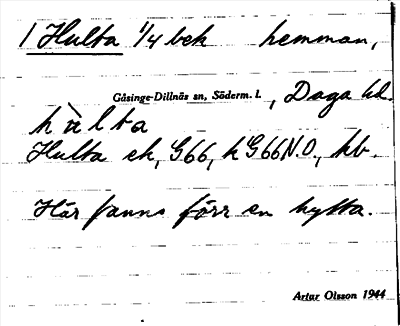 1 Hulta 1/4 bek hemman,
Gåsinge-Dillnäs sn, Söderm. l., Daga hd.
hùlta
Hulta ek, G66, hG66N.O., kb.
Här fanns förr en hytta.
Artur Olsson 1944